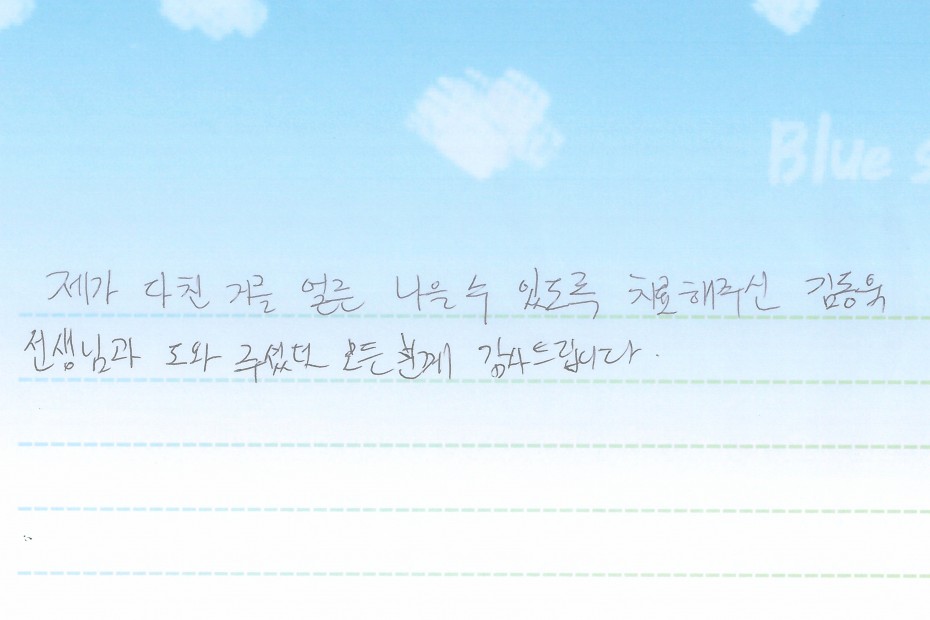 Blue s
제가 다친 거를 얼른 나을 수 있도록 치료해주신 김동욱
선생님과 도와 주셨던 모든 분게 감사드립니다.